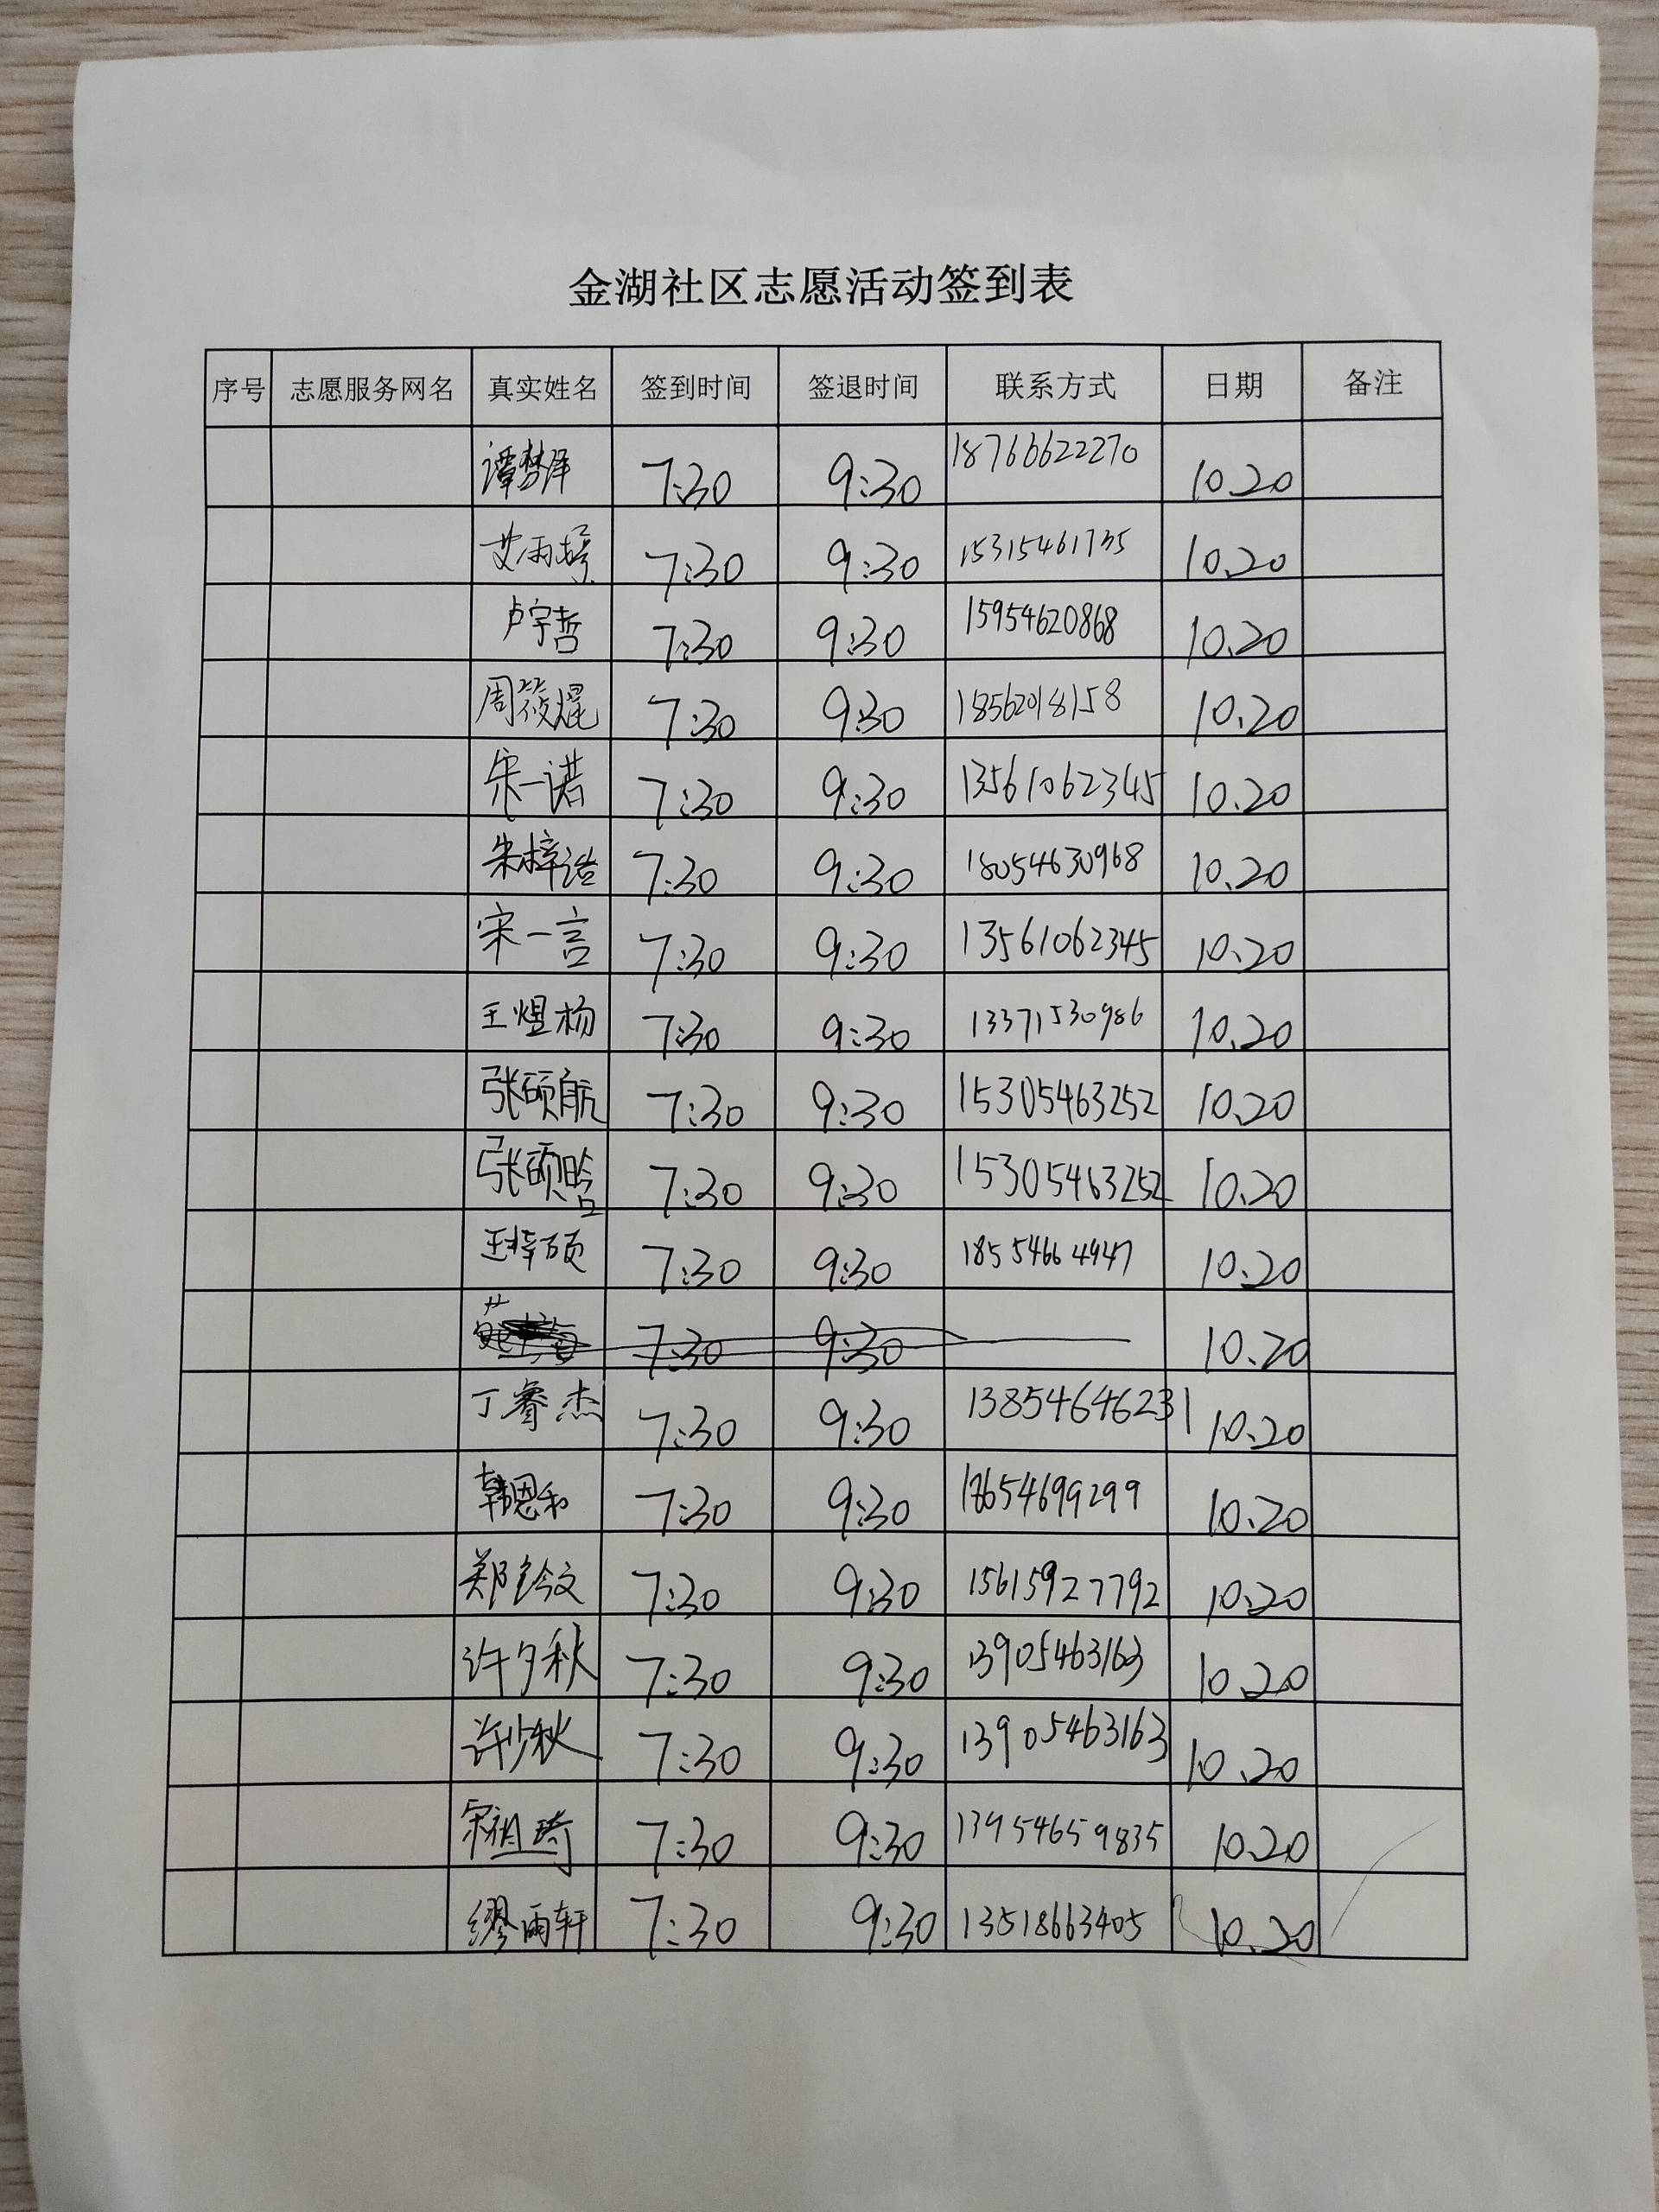 金湖社区志愿活动签到表
序号 志愿服务网名 真实姓名 签到时间 签退时间 联系方式 日期 备注
谭梦泽 7:30 9:30 18766622270 10.20
艾雨婷 7:30 9:30 15315461735 10.20
卢宇哲 7:30 9:30 15954620868 10.20
周筱焜 7:30 9:30 18562018158 10.20
宋一诺 7:30 9:30 13561062345 10.20
朱梓诰 7:30 9:30 18054630968 10.20
宋一言 7:30 9:30 13561062345 10.20
王煜杨 7:30 9:30 13371530986 10.20
张硕航 7:30 9:30 15305463252 10.20
张硕晗 7:30 9:30 15305463252 10.20
王梓硕 7:30 9:30 18554664947 10.20
7:30 9:30 10.20
丁睿杰 7:30 9:30 13854646231 10.20
韩恩和 7:30 9:30 18654699299 10.20
郑钤文 7:30 9:30 15615927792 10.20
许夕秋 7:30 9:30 13905463163 10.20
许少秋 7:30 9:30 13905463163 10.20
宋祖琦 7:30 9:30 13954659835 10.20
缪雨轩 7:30 9:30 13518663405 10.20